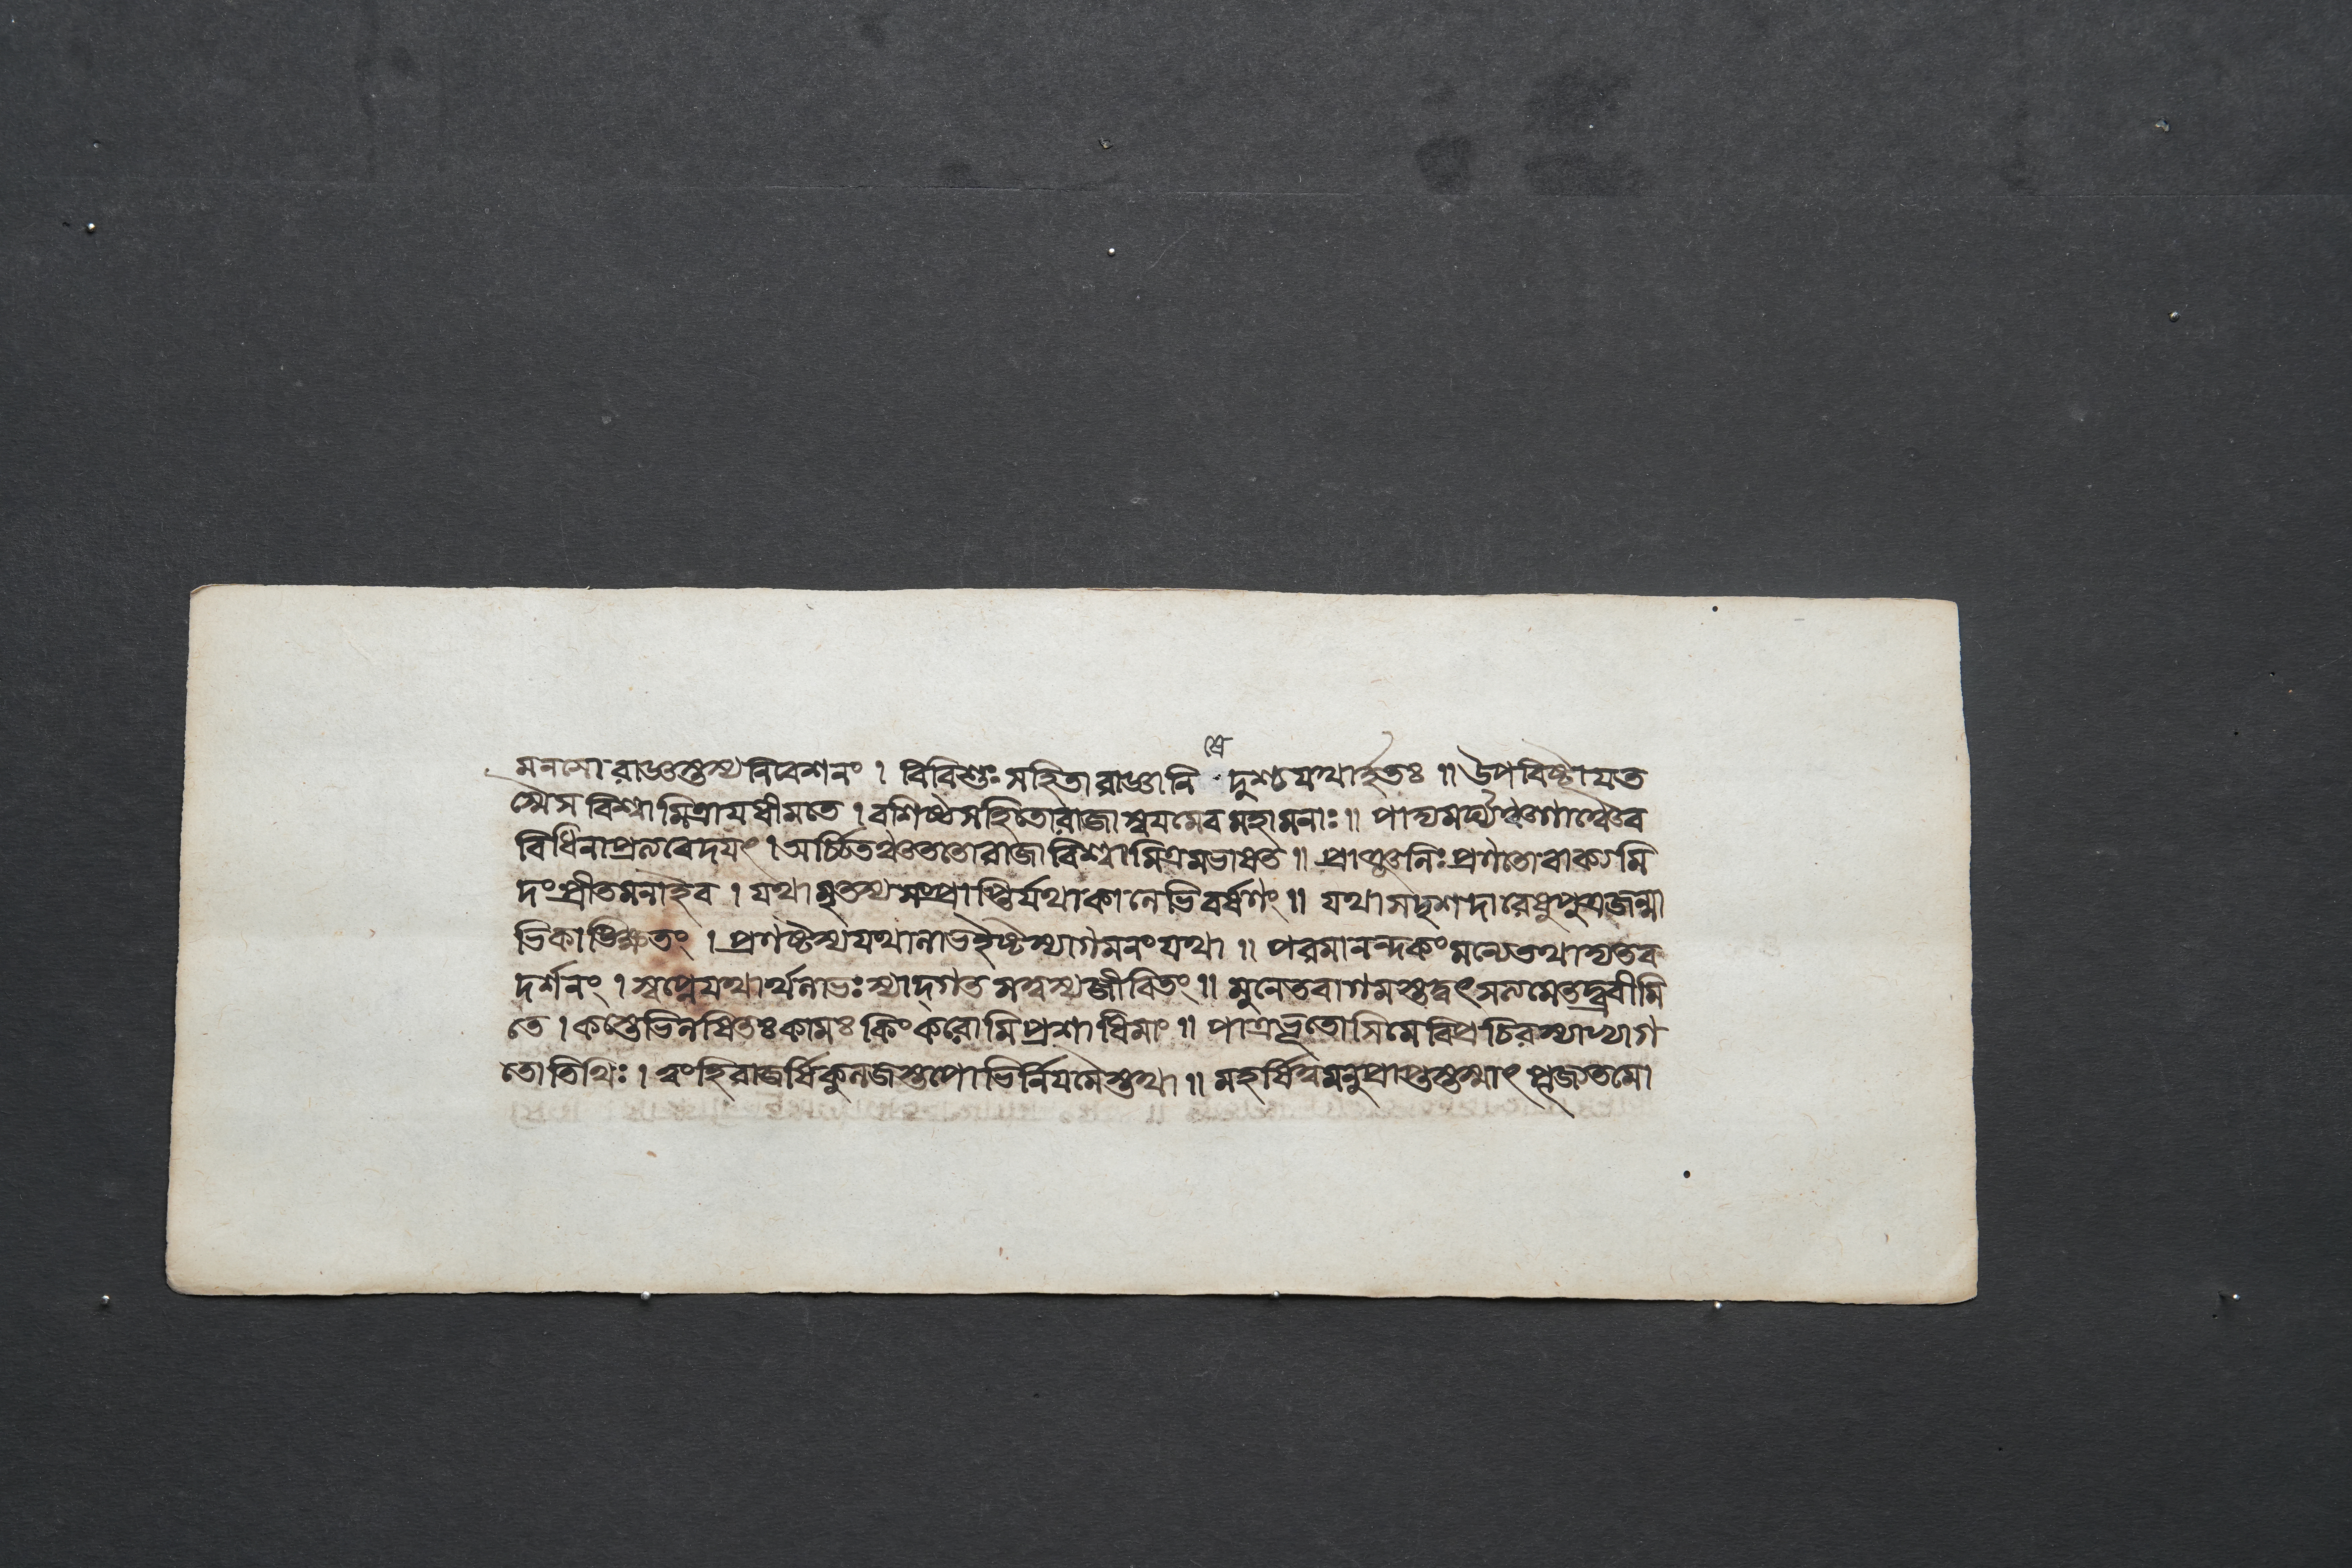 মনসো রাজ্ঞস্তস্য নিবেশনং । বিবিশুঃ সহিতা রাজ্ঞা নি
ষে
দুশ্চ যথার্হতঃ ॥ উপবিষ্টায ত
স্মৈ স বিশ্বামিত্রায ধীমতে । বশিষ্ঠসহিতো রাজা স্বযমেব মহামনাঃ ॥ পাদ্যমর্ঘ্যঞ্চ গাঞ্চৈব
বিধিনা প্রত্যবেদযৎ । অর্চ্চিতঞ্চ ততো রাজা বিশ্বামিত্রমভাষত ॥ প্রাঞ্জলিঃ প্রণতো বাক্যমি
দং প্রীতমনা ইব । যথামৃতস্য সংপ্রাপ্তির্যথা কালেভিবর্ষণং ॥ যথা সদৃশদারেষু পুত্রজন্মা
ভিকাঙ্ক্ষিতং । প্রণষ্টস্য যথা লাভ ইষ্টস্যাগমনং যথা ॥ পরমানন্দকং মন্যে তথাদ্য তব
দর্শনং । স্বপ্নে যথার্থলাভঃ স্যাদ্গতমস্বস্য জীবিতং ॥ মুনে তবাগমস্তদ্বৎ সত্যমেতদ্ব্রবীমি
তে । কস্তেভিলষিতঃ কামঃ কিং করোমি প্রশাধি মাং ॥ পাত্রভূতোসি মে বিপ্র চিরস্যাপ্যাগ
তোতিথিঃ । ত্বং হি রাজর্ষিকুলজস্তপোভির্নিযমৈস্তথা ॥ মহর্ষিত্বমনুপ্রাপ্তস্তস্মাৎ পূজ্যতমো